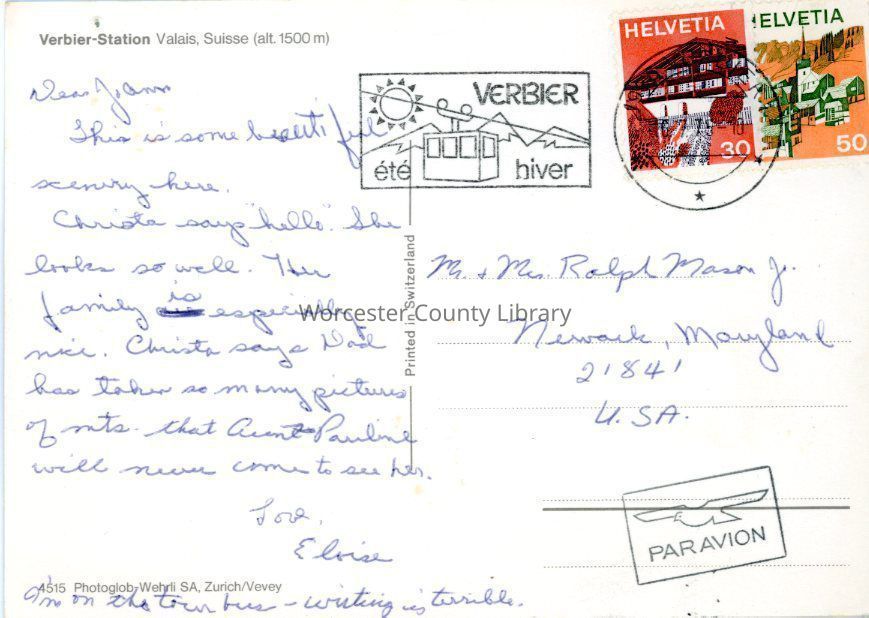 Verbier-Station Valais, Suisse (alt. 1500 m)
Dear Jo Ann
This is some beautiful
scenery here.
Christa says "hello". She
looks so well. Her
family is especially
nice. Christa says Dad
has taken so many pictures
of mts. that Aunt Pauline
will never come to see her.
Love,
Eloise
4515 Photoglob-Wehrli SA, Zurich/Vevey
I'm on the tour bus - writing is terrible.
Printed in Switzerland
VERBIER
été hiver
HELVETIA
30
HELVETIA
50
Mr. + Mrs. Ralph Mason Jr.
Newark, Maryland
21841
U.S.A.
PAR AVION
Worcester County Library